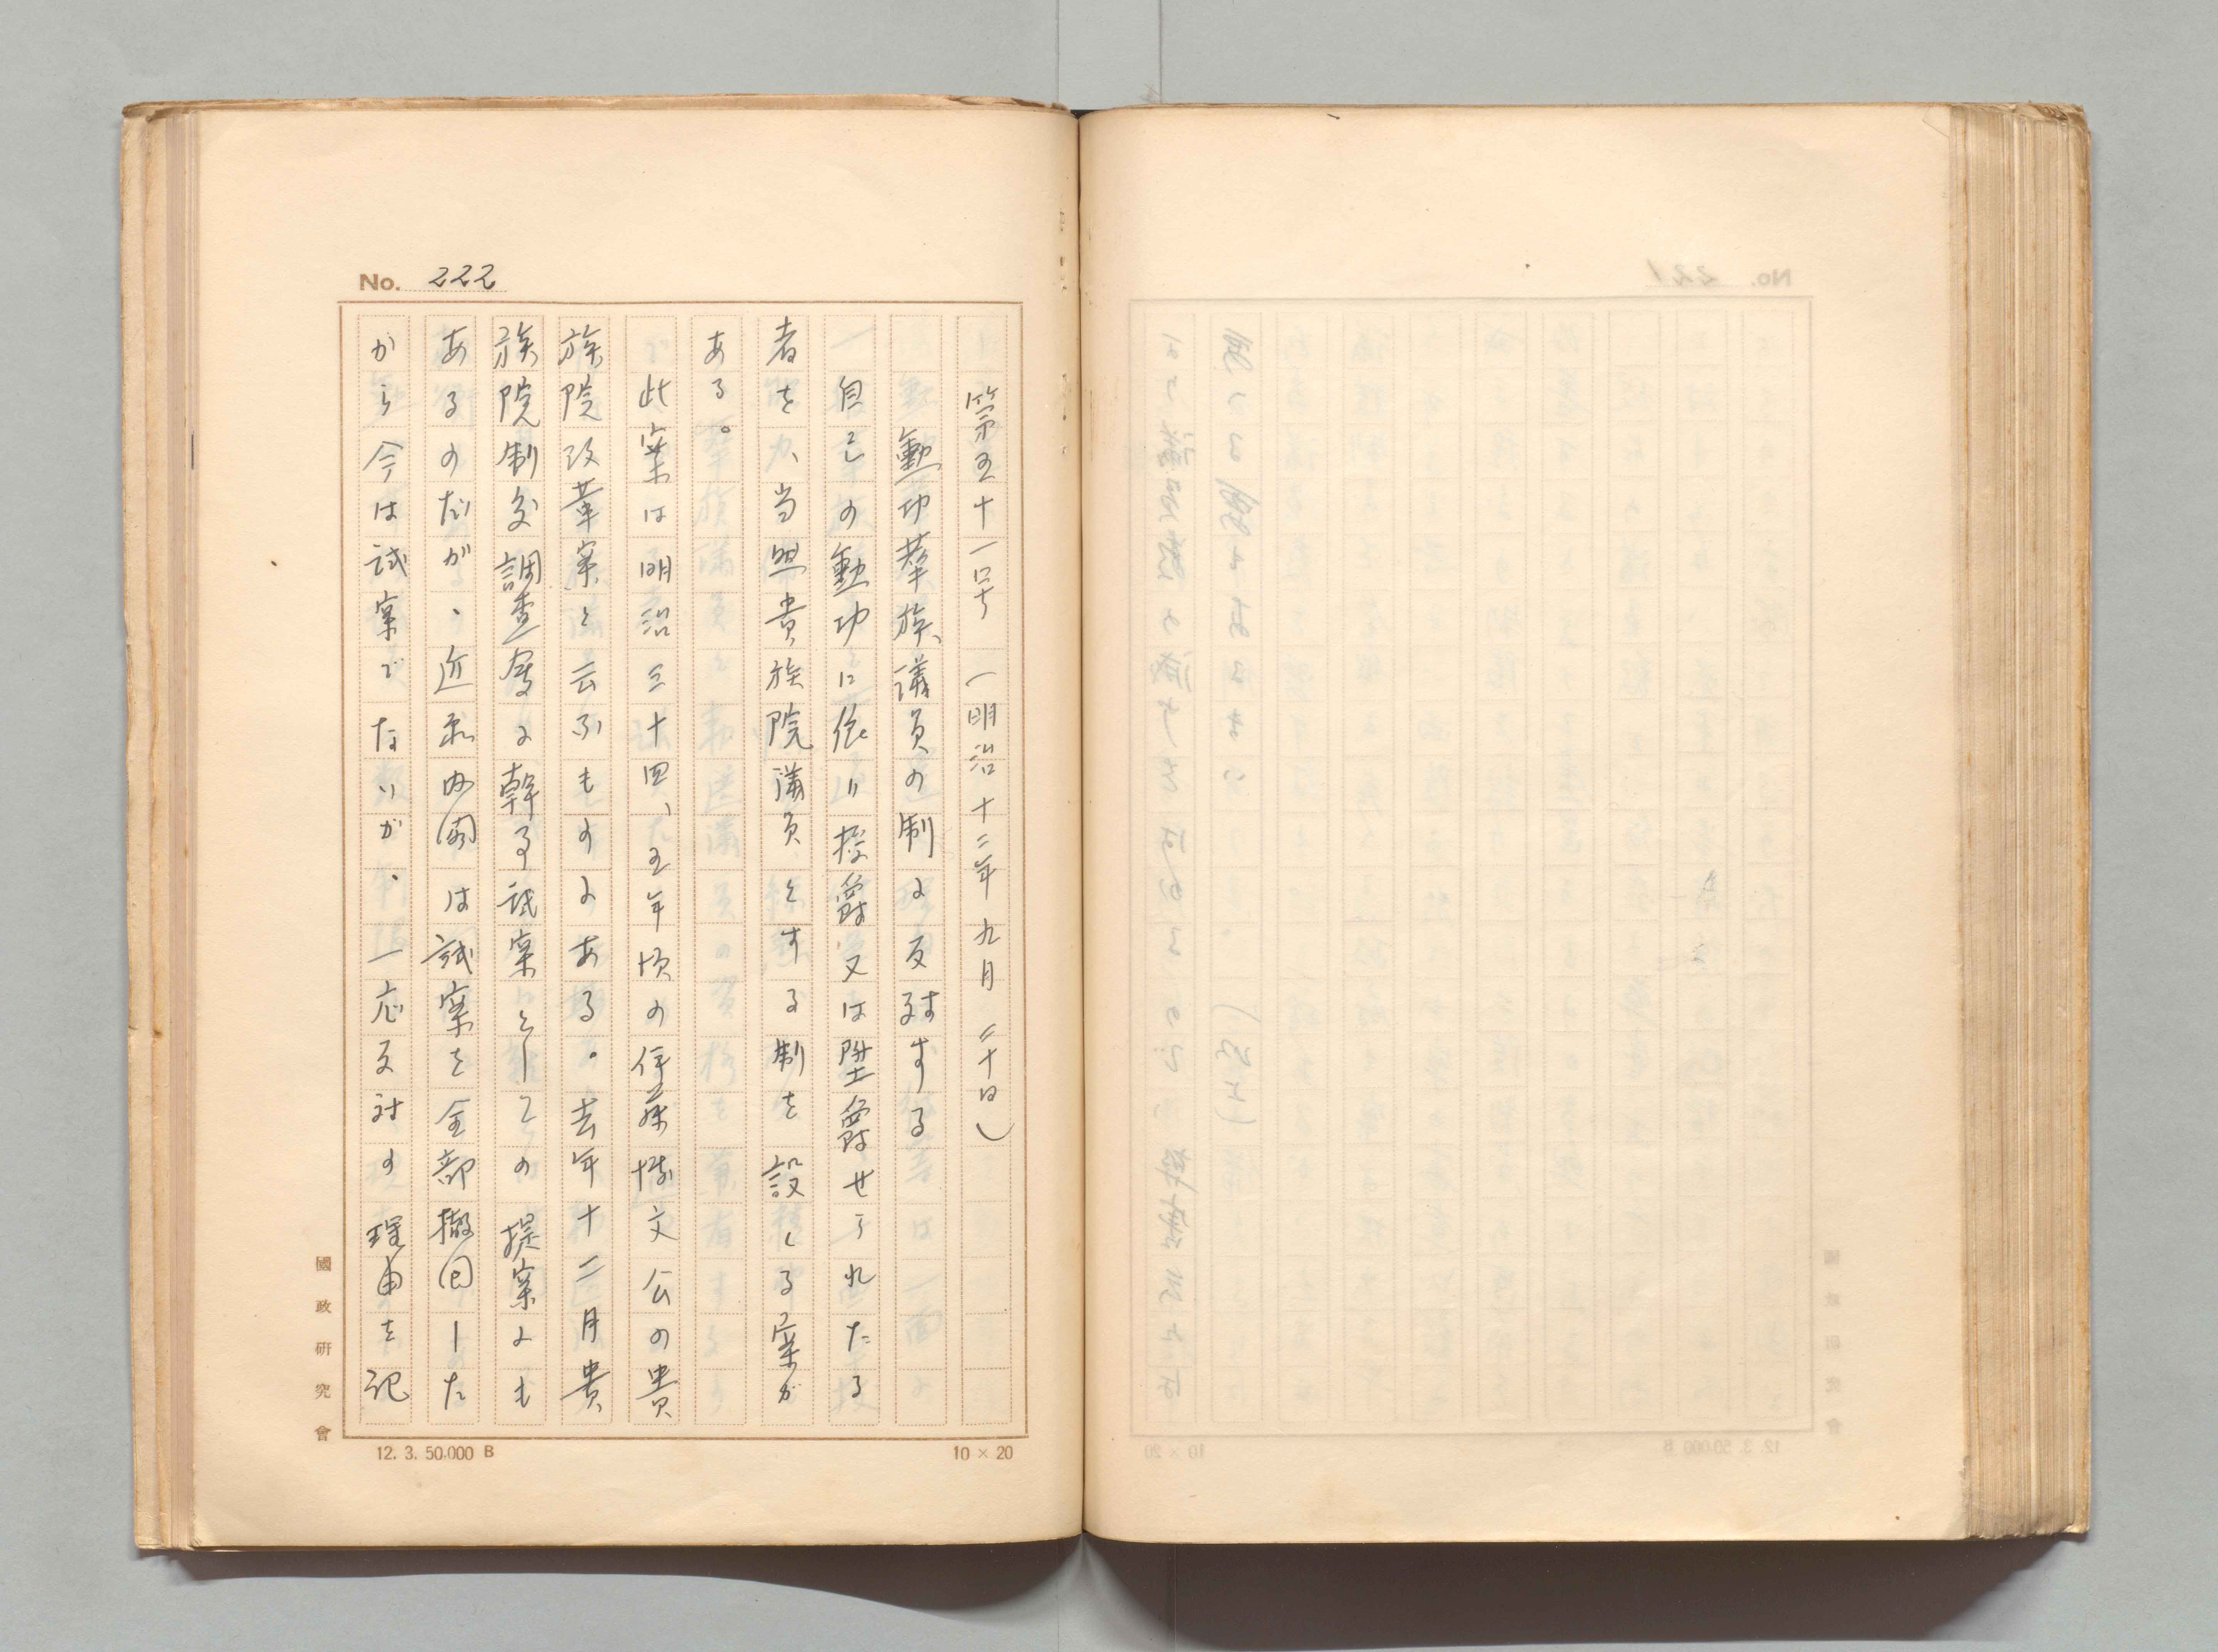 No. 222
第五十一号 (明治十二年九月二十日)
勲功華族議員の制に反対する
自己の勲功に依り授爵又は陞爵せられたる
者を、当然貴族院議員とする制を設くる案が
ある。
此案は明治三十四、五年頃の伊藤博文公の貴
族院改革案と云ふものにある。去年十二月貴
族院制度調査会に幹事試案としての提案にも
あるのだが、近衛内閣は試案を全部撤回した
から今は試案でないが、一応反対の理由を記
國政研究會
12. 3. 50,000 B
10 × 20